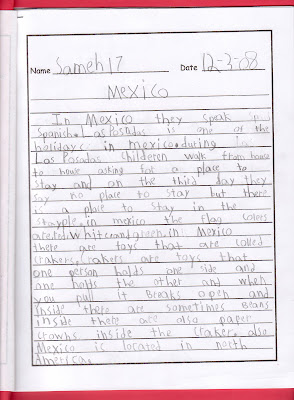 Name Sameh 17 Date 12-3-08
Mexico
In Mexico they speak
Spanish. Las Posadas is one of the
holidays in mexico. during
Las Posadas childeren walk from house
to house asking for a place to
stay and on the third day they
say no place to stay but there
is a place to stay in the
staple. in mexico the flag colors
are red white and green. in Mexico
there are toys that are colled
crakers. crakers are toys that
one person holds one side and
one holds the other and when
you pull it Breaks open and
Inside there are sometimes Beans
inside there are also paper
crowns inside the craker. also
Mexico is located in north
America.